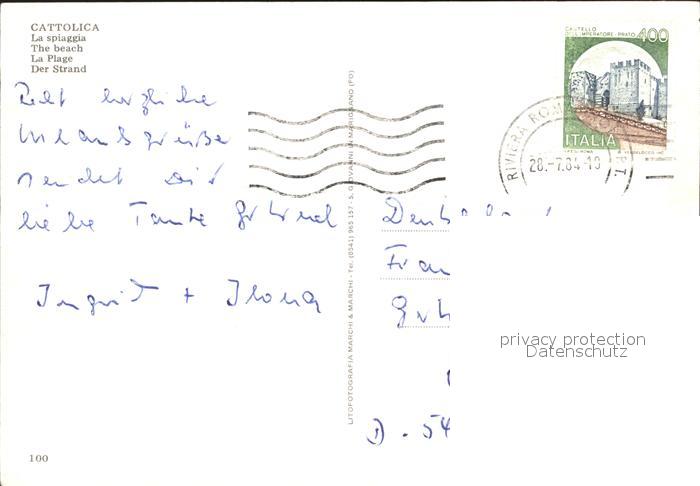 CATTOLICA
La spiaggia
The beach
La Plage
Der Strand
CASTELLO
DELL'IMPERATORE - PRATO 400
ITALIA
RIVIERA ROM
28.-7.84-19
Recht herzliche
Urlaubsgrüße
sendet Dir
liebe Tante Gertrud
Ingrid + Ilona
LITOFOTOGRAFIA MARCHI & MARCHI - Tel. (0541) 965 157 - S. GIOVANNI IN MARIGNANO (FO)
Fran
D - 54
privacy protection
Datenschutz
100